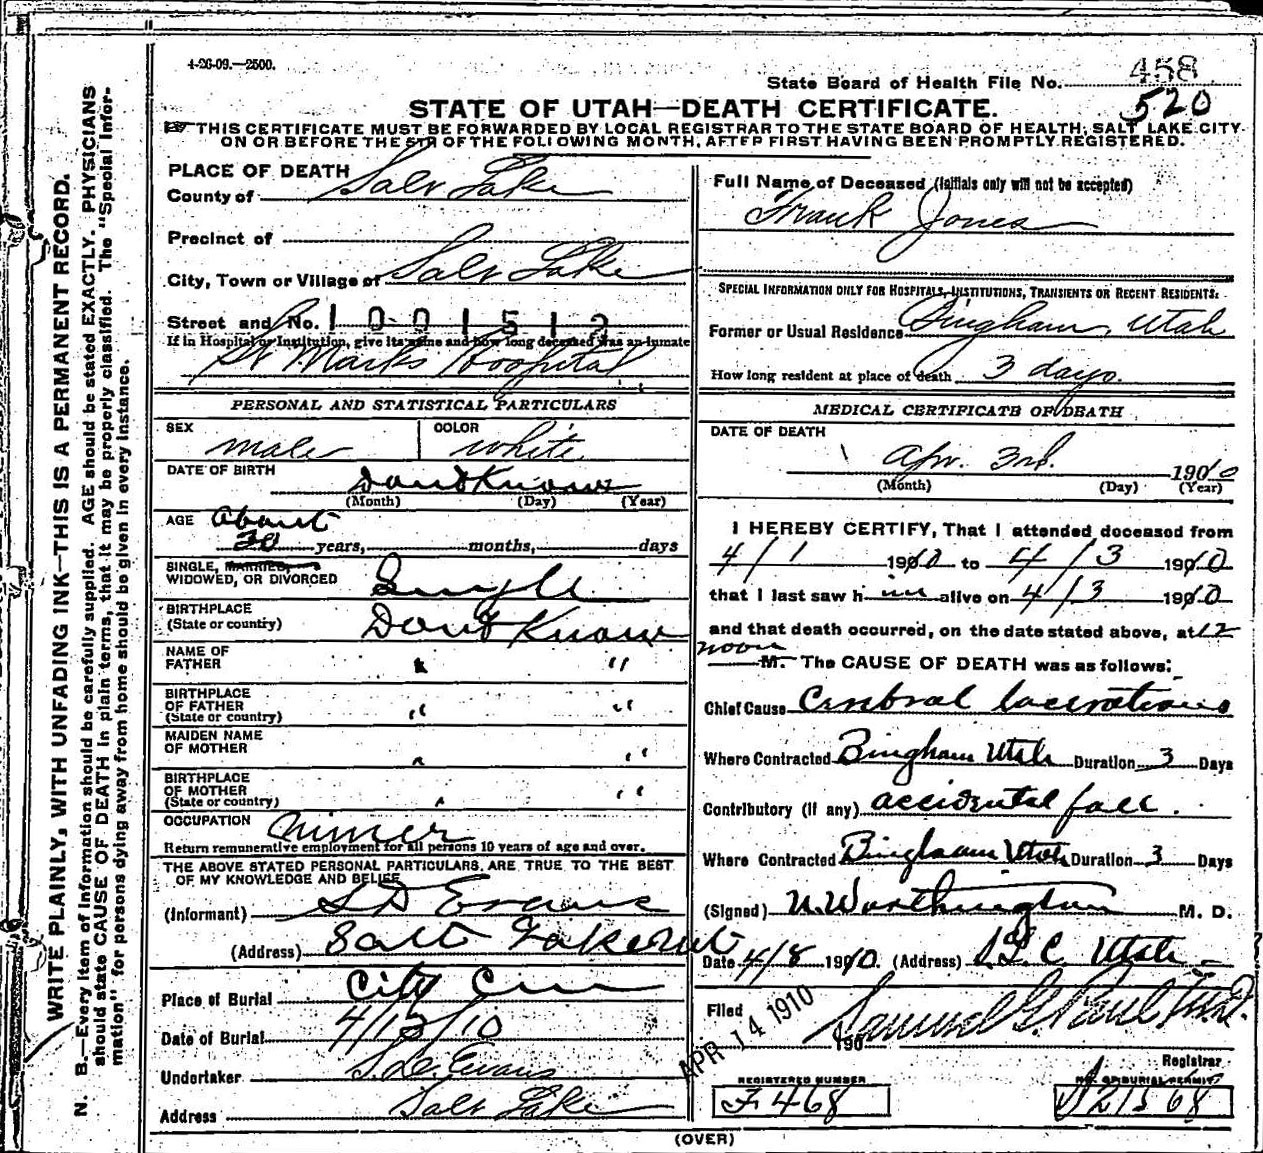 4-26-09.—2500.
State Board of Health File No. 458
520
STATE OF UTAH—DEATH CERTIFICATE.
THIS CERTIFICATE MUST BE FORWARDED BY LOCAL REGISTRAR TO THE STATE BOARD OF HEALTH, SALT LAKE CITY
ON OR BEFORE THE 5TH OF THE FOLLOWING MONTH, AFTER FIRST HAVING BEEN PROMPTLY REGISTERED.
WRITE PLAINLY, WITH UNFADING INK—THIS IS A PERMANENT RECORD.
N. B.—Every item of information should be carefully supplied. AGE should be stated EXACTLY. PHYSICIANS
should state CAUSE OF DEATH in plain terms, that it may be properly classified. The "Special Infor-
mation" for persons dying away from home should be given in every instance.
PLACE OF DEATH
County of Salt Lake
Precinct of
City, Town or Village of Salt Lake
Street and No. 1001512
If in Hospital or Institution, give its name and how long deceased was an inmate
St Marks Hospital
PERSONAL AND STATISTICAL PARTICULARS
SEX male COLOR white
DATE OF BIRTH Dont Know
(Month) (Day) (Year)
AGE About
30 years, months, days
SINGLE, MARRIED,
WIDOWED, OR DIVORCED Single
BIRTHPLACE
(State or country) Dont Know
NAME OF
FATHER " "
BIRTHPLACE
OF FATHER
(State or country) " "
MAIDEN NAME
OF MOTHER " "
BIRTHPLACE
OF MOTHER
(State or country) " "
OCCUPATION Miner
Return remunerative employment for all persons 10 years of age and over.
THE ABOVE STATED PERSONAL PARTICULARS ARE TRUE TO THE BEST
OF MY KNOWLEDGE AND BELIEF
(Informant) S D Evans
(Address) Salt Lake Ut
Place of Burial City Cem
Date of Burial 4/15/10
Undertaker S. D. Evans
Address Salt Lake
Full Name of Deceased (Initials only will not be accepted)
Frank Jones
SPECIAL INFORMATION ONLY FOR HOSPITALS, INSTITUTIONS, TRANSIENTS OR RECENT RESIDENTS:
Former or Usual Residence Bingham, Utah
How long resident at place of death 3 days.
MEDICAL CERTIFICATE OF DEATH
DATE OF DEATH
Apr. 3rd. 1910
(Month) (Day) (Year)
I HEREBY CERTIFY, That I attended deceased from
4/1 1910 to 4/3 1910
that I last saw him alive on 4/3 1910
and that death occurred, on the date stated above, at 12
noon M. The CAUSE OF DEATH was as follows:
Chief Cause Cerebral lacerations
Where Contracted Bingham Utah Duration 3 Days
Contributory (if any) accidental fall.
Where Contracted Bingham Utah Duration 3 Days
(Signed) U. Worthington M. D.
Date 4/8 1910. (Address) S. L. C. Utah
Filed APR 14 1910 190 Samuel G. Paul M.D.
Registrar
REGISTERED NUMBER
F 468
NO. OF BURIAL PERMIT
(OVER)